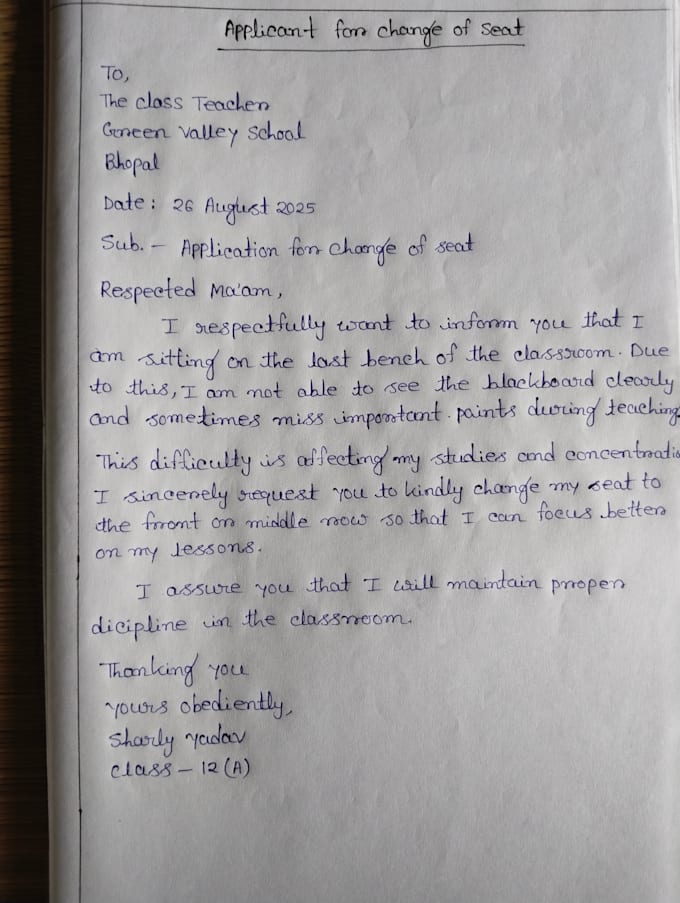 Applicant for change of seat
To,
The class Teacher
Green Valley School
Bhopal
Date: 26 August 2025
Sub. - Application for change of seat
Respected Ma'am,
I respectfully want to inform you that I
am sitting on the last bench of the classroom. Due
to this, I am not able to see the blackboard clearly
and sometimes miss important points during teaching.
This difficulty is affecting my studies and concentratio
I sincerely request you to kindly change my seat to
the front or middle row so that I can focus better
on my lessons.
I assure you that I will maintain proper
dicipline in the classroom.
Thanking you
yours obediently,
Sharly Yadav
class - 12 (A)